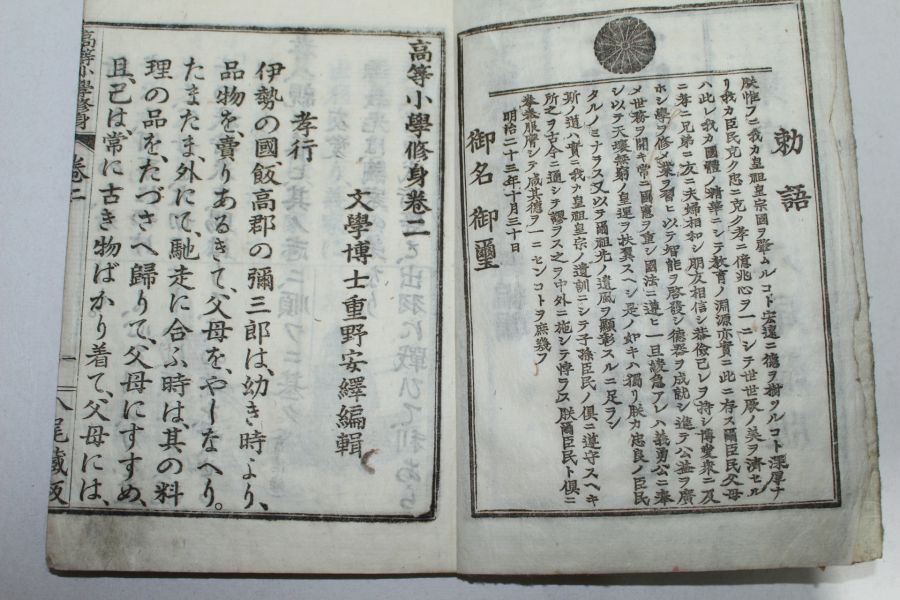 勅語
朕惟フニ我カ皇祖皇宗國ヲ肇ムルコト宏遠ニ德ヲ樹ツルコト深厚ナ
リ我カ臣民克ク忠ニ克ク孝ニ億兆心ヲ一ニシテ世世厥ノ美ヲ濟セル
ハ此レ我カ國體ノ精華ニシテ教育ノ淵源亦實ニ此ニ存ス爾臣民父母
ニ孝ニ兄弟ニ友ニ夫婦相和シ朋友相信シ恭儉己レヲ持シ博愛衆ニ及
ホシ學ヲ修メ業ヲ習ヒ以テ智能ヲ啓發シ德器ヲ成就シ進テ公益ヲ廣
メ世務ヲ開キ常ニ國憲ヲ重シ國法ニ遵ヒ一旦緩急アレハ義勇公ニ奉
シ以テ天壤無窮ノ皇運ヲ扶翼スヘシ是ノ如キハ獨リ朕カ忠良ノ臣民
タルノミナラス又以テ爾祖先ノ遺風ヲ顯彰スルニ足ラン
斯ノ道ハ實ニ我カ皇祖皇宗ノ遺訓ニシテ子孫臣民ノ俱ニ遵守スヘキ
所之ヲ古今ニ通シテ謬ラス之ヲ中外ニ施シテ悖ラス朕爾臣民ト俱ニ
拳拳服膺シテ咸其德ヲ一ニセンコトヲ庶幾フ
明治二十三年十月三十日
御名 御璽
高等小學修身卷二
文學博士重野安繹編輯
孝行
伊勢の國飯高郡の彌三郎は、幼き時より、
品物を、賣りあるきて、父母を、やしなへり。
たまたま、外にて、馳走に合ふ時は、其の料
理の品を、たづさへ歸りて、父母にすすめ、
且、己は、常に古き物ばかり着て、父母には、
高等小學修身 卷二 八尾藏版